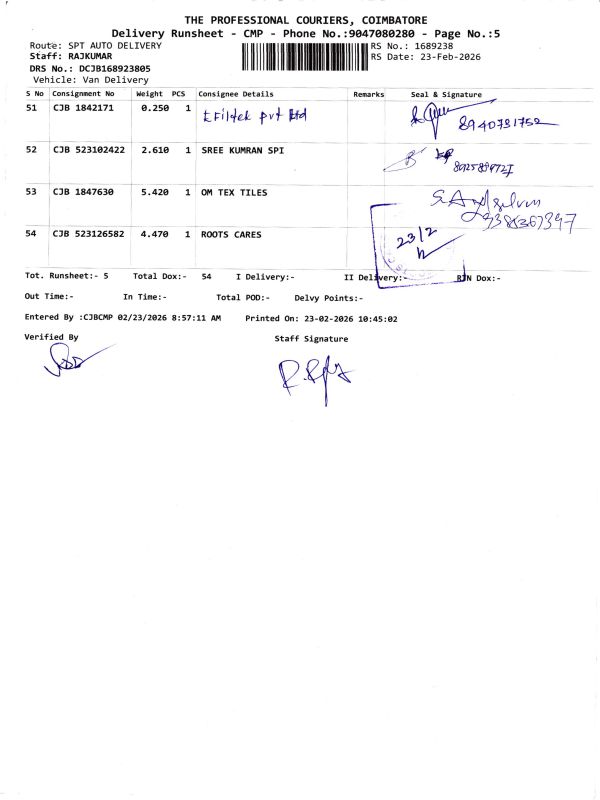 THE PROFESSIONAL COURIERS, COIMBATORE
Delivery Runsheet - CMP - Phone No.:9047080280 - Page No.:5
Route: SPT AUTO DELIVERY RS No.: 1689238
Staff: RAJKUMAR RS Date: 23-Feb-2026
DRS No.: DCJB168923805
Vehicle: Van Delivery
S No Consignment No Weight PCS Consignee Details Remarks Seal & Signature
51 CJB 1842171 0.250 1 pvt ltd 8940791752
52 CJB 523102422 2.610 1 SREE KUMRAN SPI
53 CJB 1847630 5.420 1 OM TEX TILES
54 CJB 523126582 4.470 1 ROOTS CARES 23/2
Tot. Runsheet:- 5 Total Dox:- 54 I Delivery:- II Delivery:- RTN Dox:-
Out Time:- In Time:- Total POD:- Delvy Points:-
Entered By :CJBCMP 02/23/2026 8:57:11 AM Printed On: 23-02-2026 10:45:02
Verified By Staff Signature